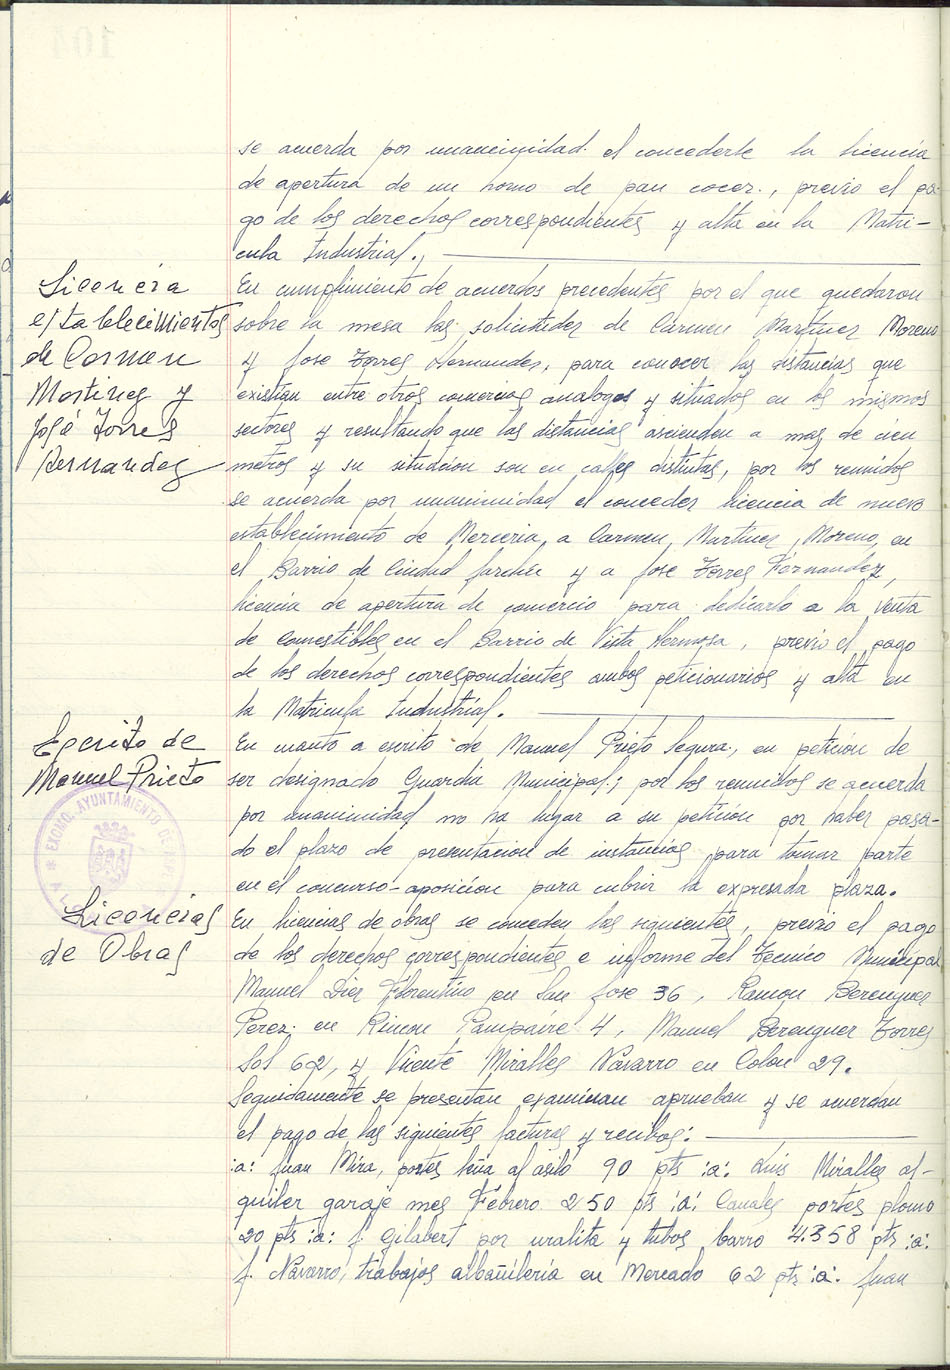 se acuerda por unanimidad. el concederle la licencia
de apertura de un horno de pan cocer., previo el pa-
go de los derechos correspondientes y alta en la Matri-
cula Industrial.,
Licencia
establecimientos
de Carmen
Martinez y
José Torres
Hernandez
En cumplimiento de acuerdos precedentes por el que quedaron
sobre la mesa las solicitudes de Carmen Martinez Moreno
y Jose Torres Hernandez, para conocer las distancias que
existian entre otros comercios analogos y situados en los mismos
sectores y resultando que las distancias ascienden a mas de cien
metros y su situación son en calles distintas, por los reunidos
se acuerda por unanimidad el conceder licencia de nuevo
establecimiento de Merceria, a Carmen, Martinez, Moreno, en
el Barrio de Ciudad Jardin y a Jose Torres Fernandez,
licencia de apertura de comercio para dedicarlo a la venta
de comestibles en el Barrio de Vista Hermosa, previo el pago
de los derechos correspondientes ambos peticionarios y alta en
la Matricula Industrial.
Escrito de
Manuel Prieto
En cuanto a escrito de Manuel Prieto Segura., en petición de
ser designado Guardia Municipal; por los reunidos se acuerda
por unanimidad no ha lugar a su petición por haber pasa-
do el plazo de presentacion de instancias para tomar parte
en el concurso-oposición para cubrir la expresada plaza.
EXCMO. AYUNTAMIENTO DE
Licencias
de Obras
En licencias de obras se conceden las siguientes, previo el pago
de los derechos correspondientes e informe del Tecnico Municipal
Manuel Diez Florentino en San Jose 36, Ramon Berenguer
Perez en Rincon 4, Manuel Berenguer Torres
Sol 62, y Vicente Miralles Navarro en Colon 29.
Seguidamente se presentan examinan aprueban y se acuerdan
el pago de las siguientes facturas y recibos:
:a: Juan Mira, portes leña al asilo 90 pts :a: Luis Miralles al-
quiler garaje mes Febrero 250 pts :a: Canales portes plomo
20 pts :a: J. Gilabert por uralita y tubos barro 4.358 pts :a:
J. Navarro, trabajos albañileria en Mercado 62 pts :a: Juan